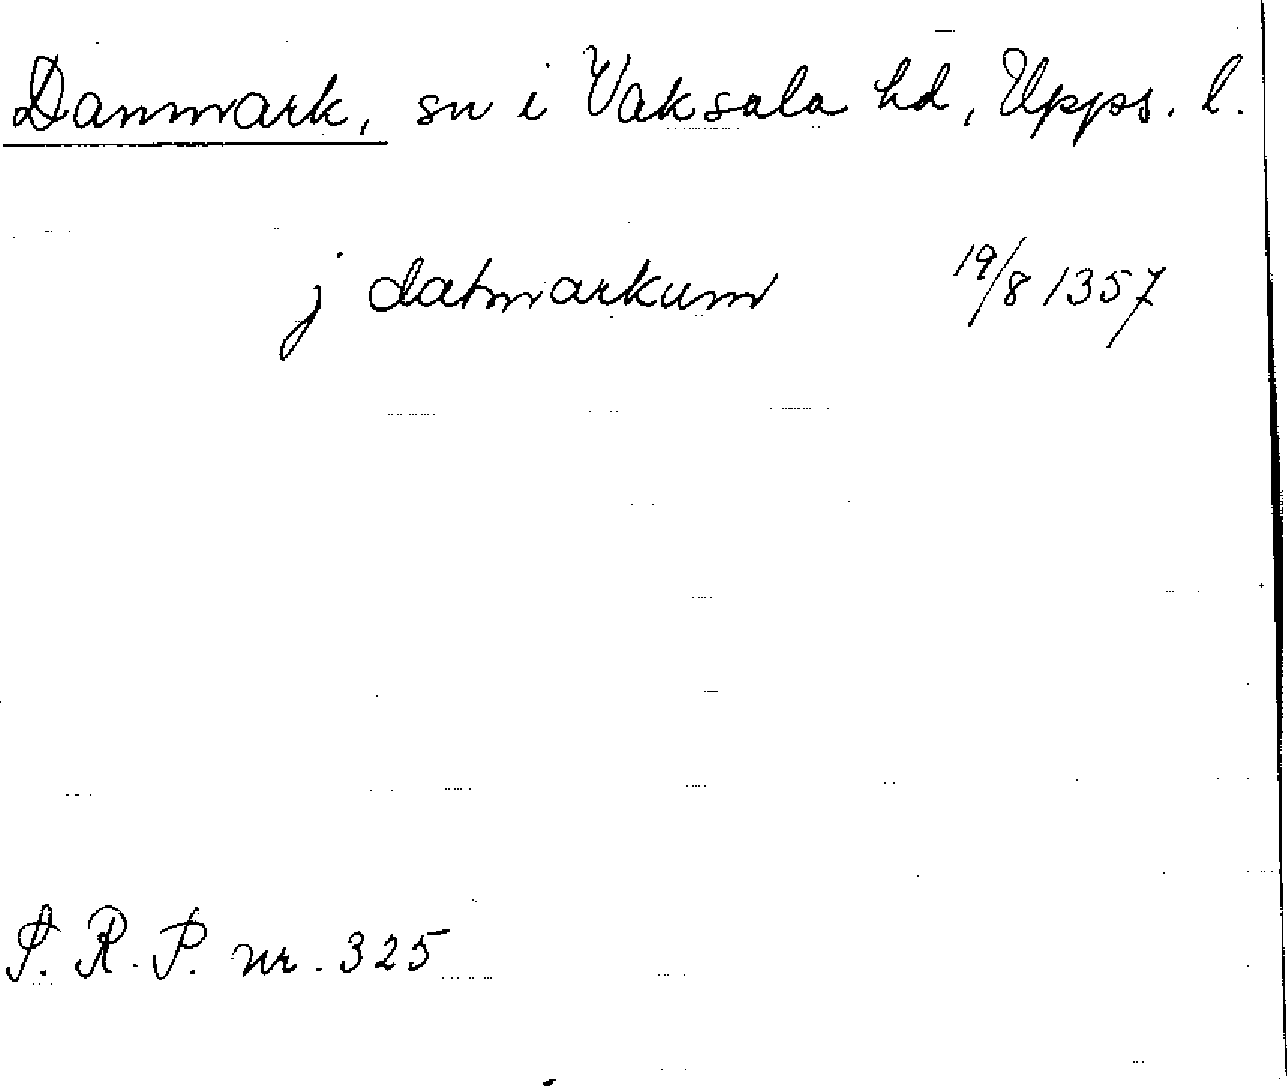 Danmark, sn i Vaksala hd, Upps. l.
j datmarkum 19/8 1357
S. R. P. nr. 325